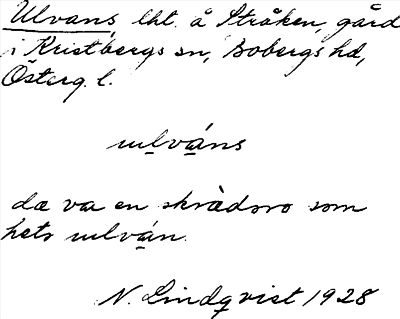 Ulvans, lht. å Stråken, gård
i Kristbergs sn, Bobergs hd,
Österg. l.
ulváns
dæ va en skràdsro som
hets ulván.
N. Lindqvist 1928